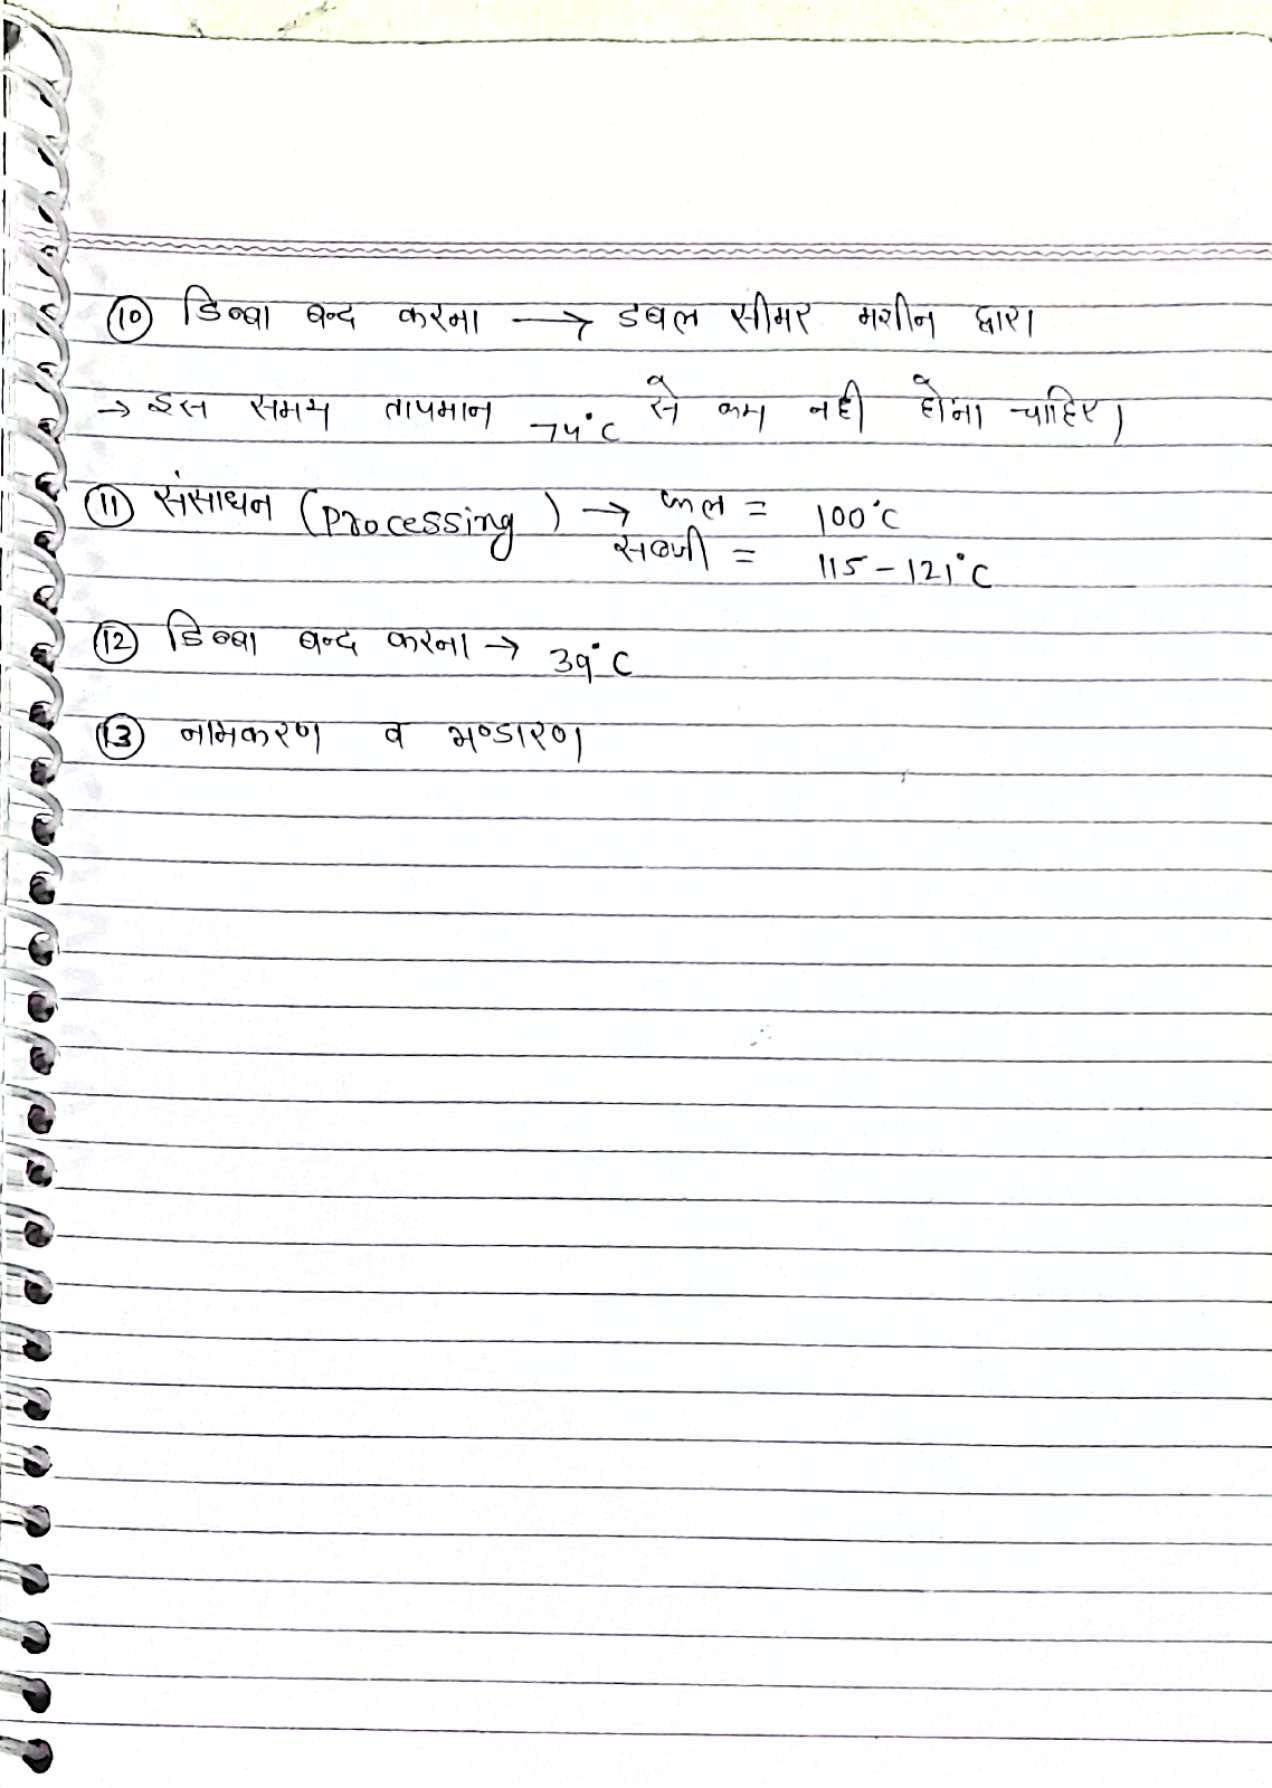 ⑩ डिब्बा बन्द करना → डबल सीमर मशीन द्वारा
→ इस समय तापमान 74°C से कम नही होना चाहिए।
⑪ संसाधन (Processing) → फल = 100°C
सब्जी = 115-121°C
⑫ डिब्बा बन्द करना → 39°C
⑬ नामकरण व भण्डारण